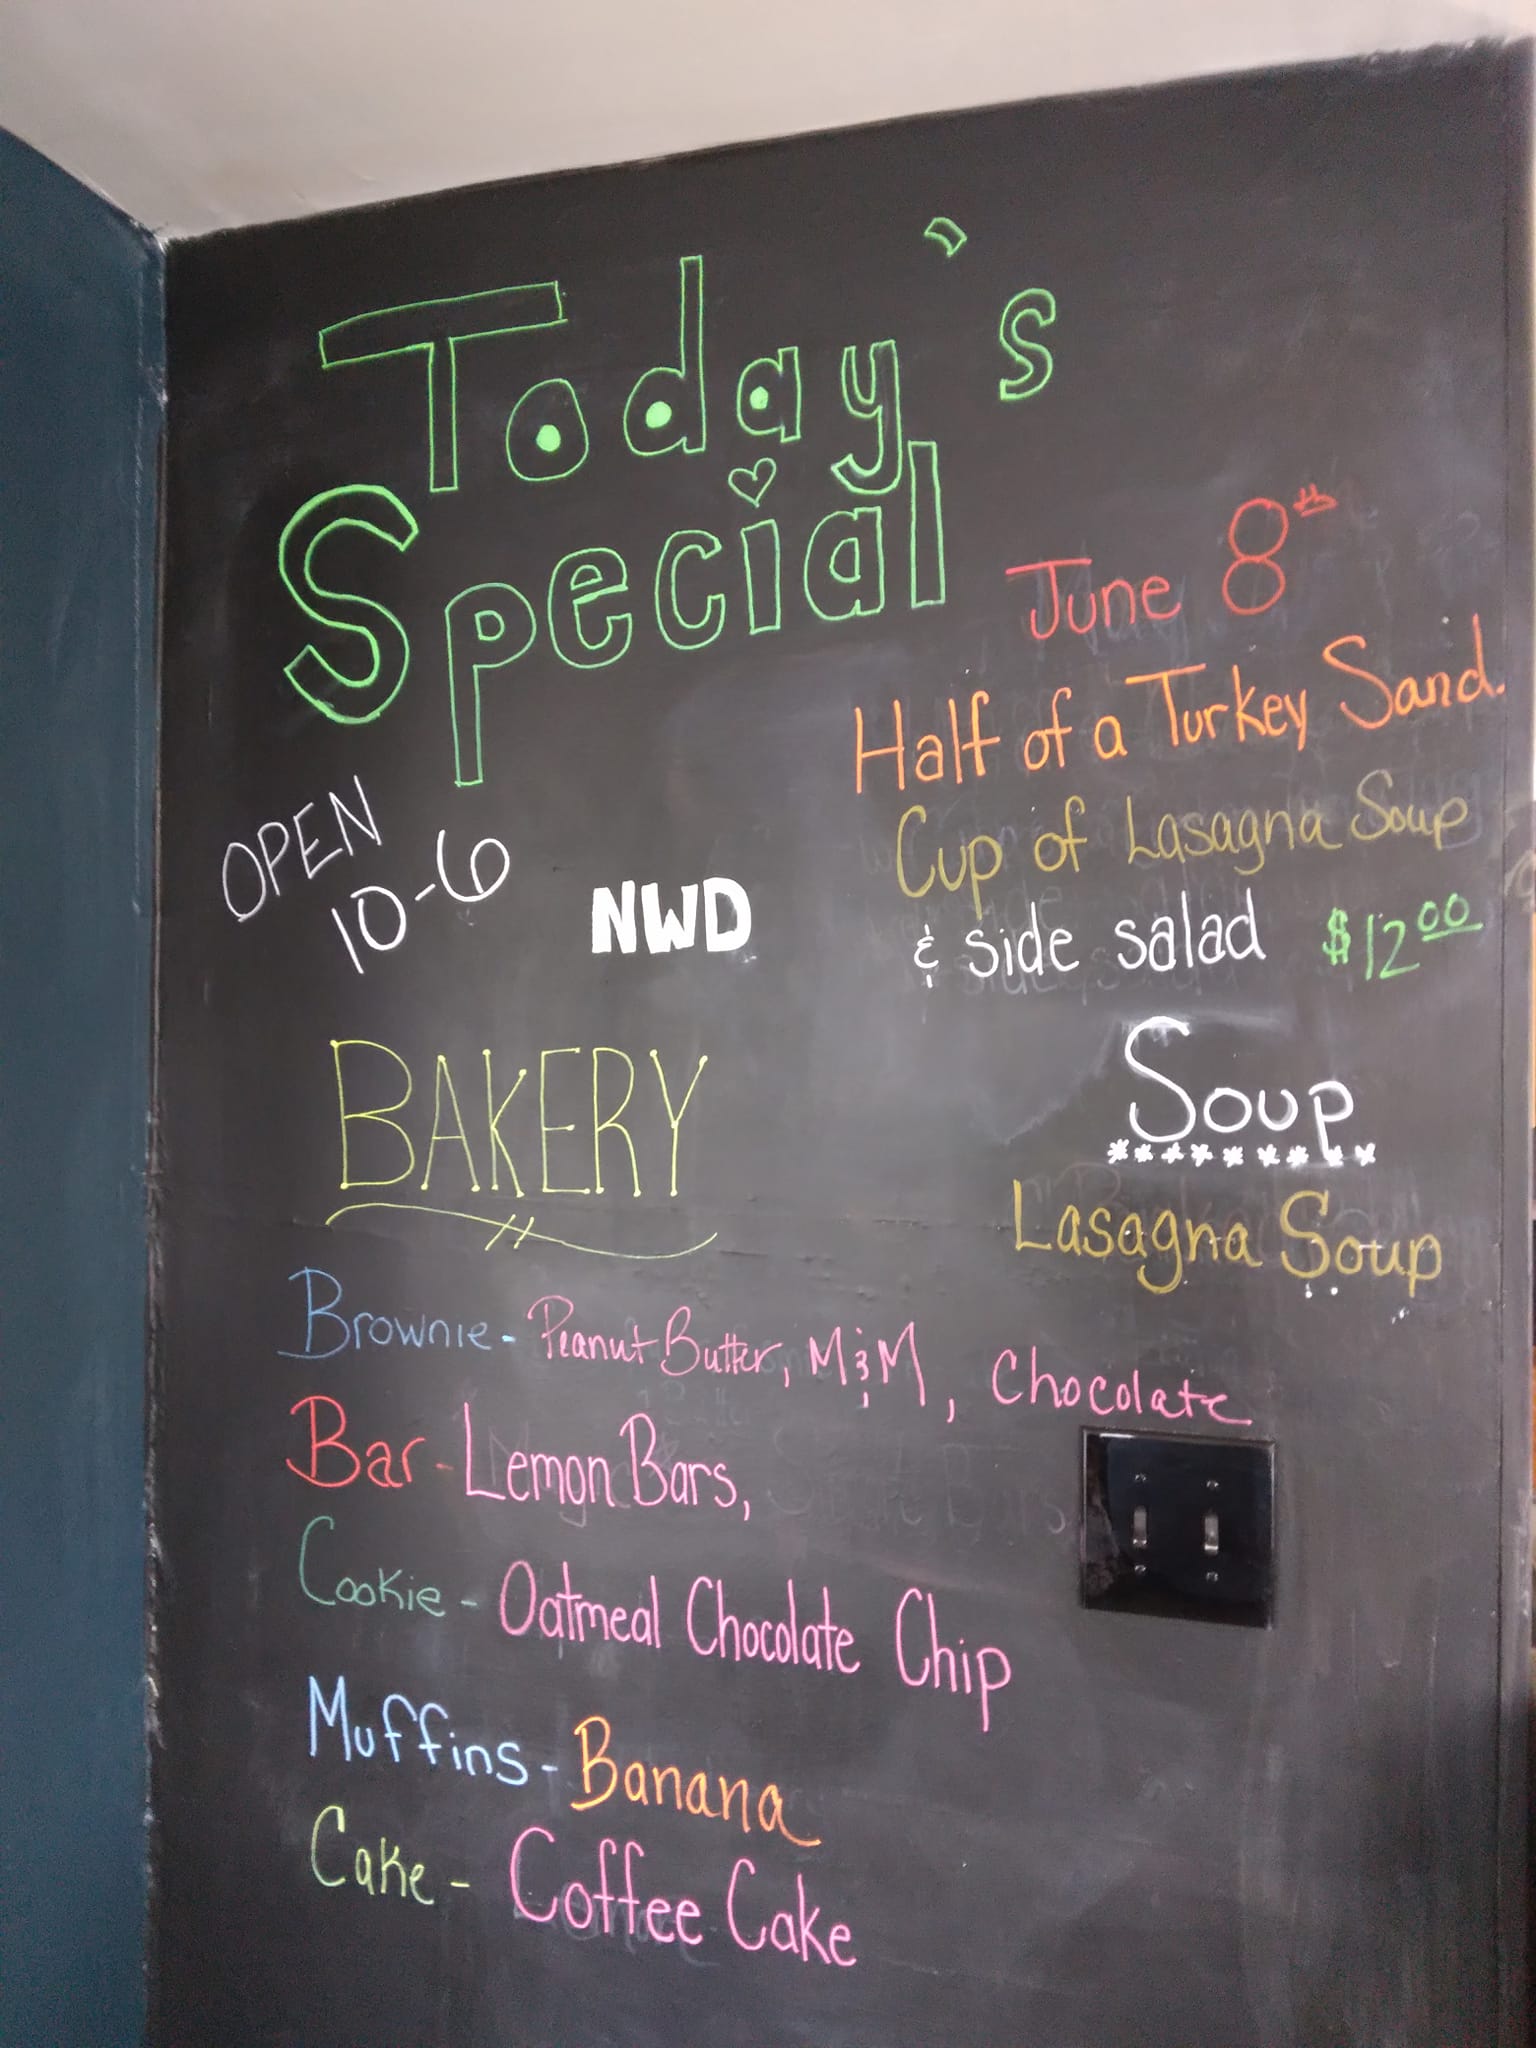 Today's
Special
June 8th
Half of a Turkey Sand.
Cup of Lasagna Soup
& side salad $12.00
OPEN
10-6
NWD
Soup
Lasagna Soup
BAKERY
Brownie- Peanut Butter, M&M, Chocolate
Bar- Lemon Bars,
Cookie- Oatmeal Chocolate Chip
Muffins- Banana
Cake- Coffee Cake